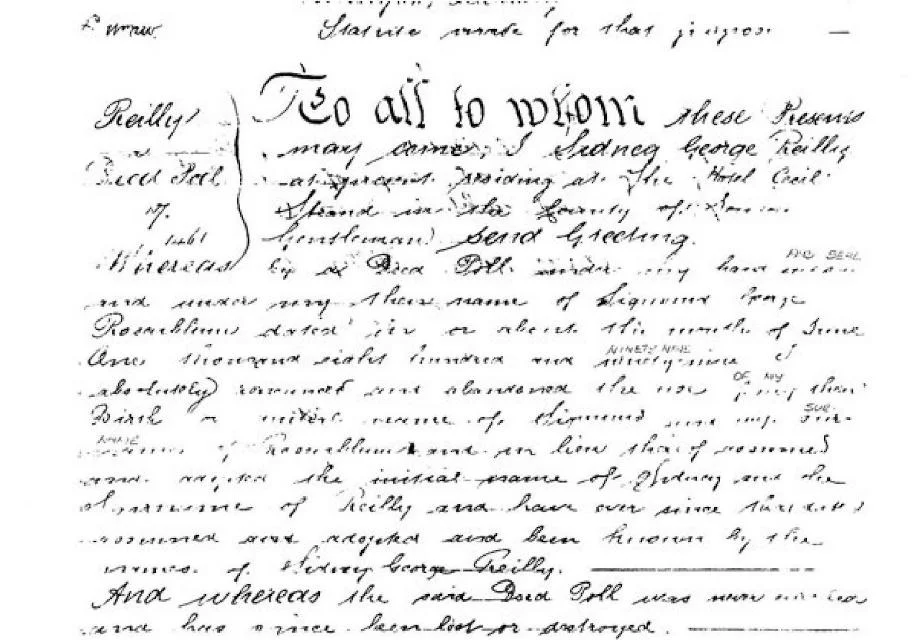 Statute made for that purpose —
Reilly To all to whom these Presents
may come, I Sidney George Reilly
Deed Poll at present residing at The Hotel Cecil
17. Strand in the County of
1461 Gentleman Send Greeting.
AND SEAL
Whereas by a Deed Poll under my hand
and under my then name of Sigmund George
Rosenblum dated in or about the month of June
NINETY NINE
One thousand eight hundred and ninety-nine I
OF MY
absolutely renounced and abandoned the use of my then
SUR
Birth or initial name of Sigmund and my Sur-
NAME
of Rosenblum and in lieu thereof assumed
and adopted the initial name of Sidney and the
Surname of Reilly and have ever since
assumed and adopted and been known by the
names of Sidney George Reilly.
And whereas the said Deed Poll was never
and has since been lost or destroyed.